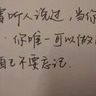 曾听人说过，当你
，你唯一可以做
自己不要忘记.